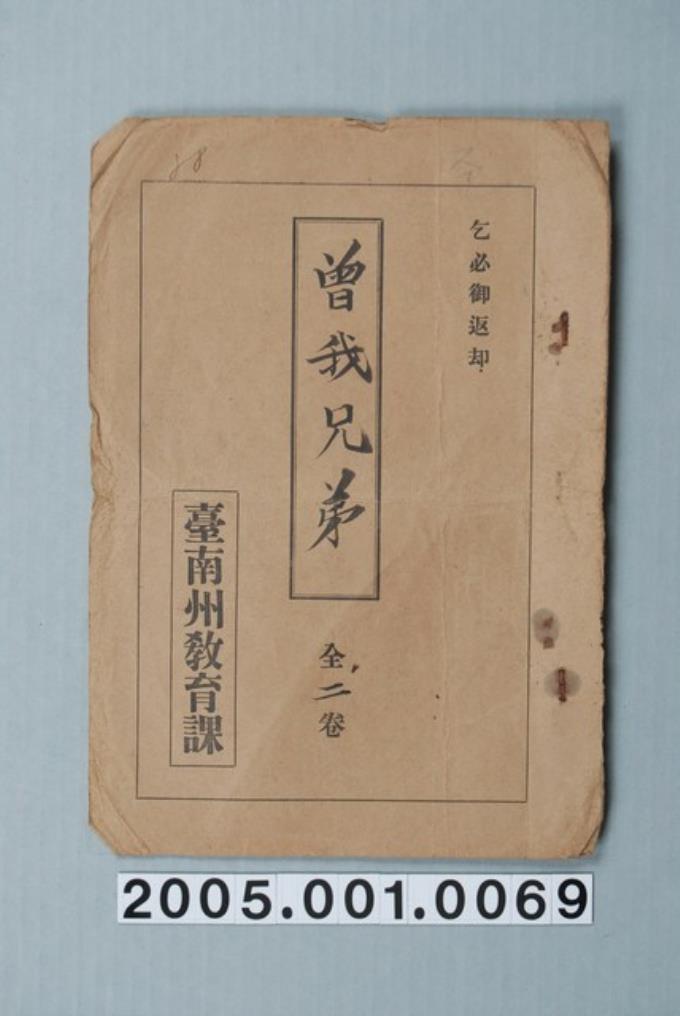 乞必御返却
曾我兄弟
全二卷
臺南州教育課
2005.001.0069